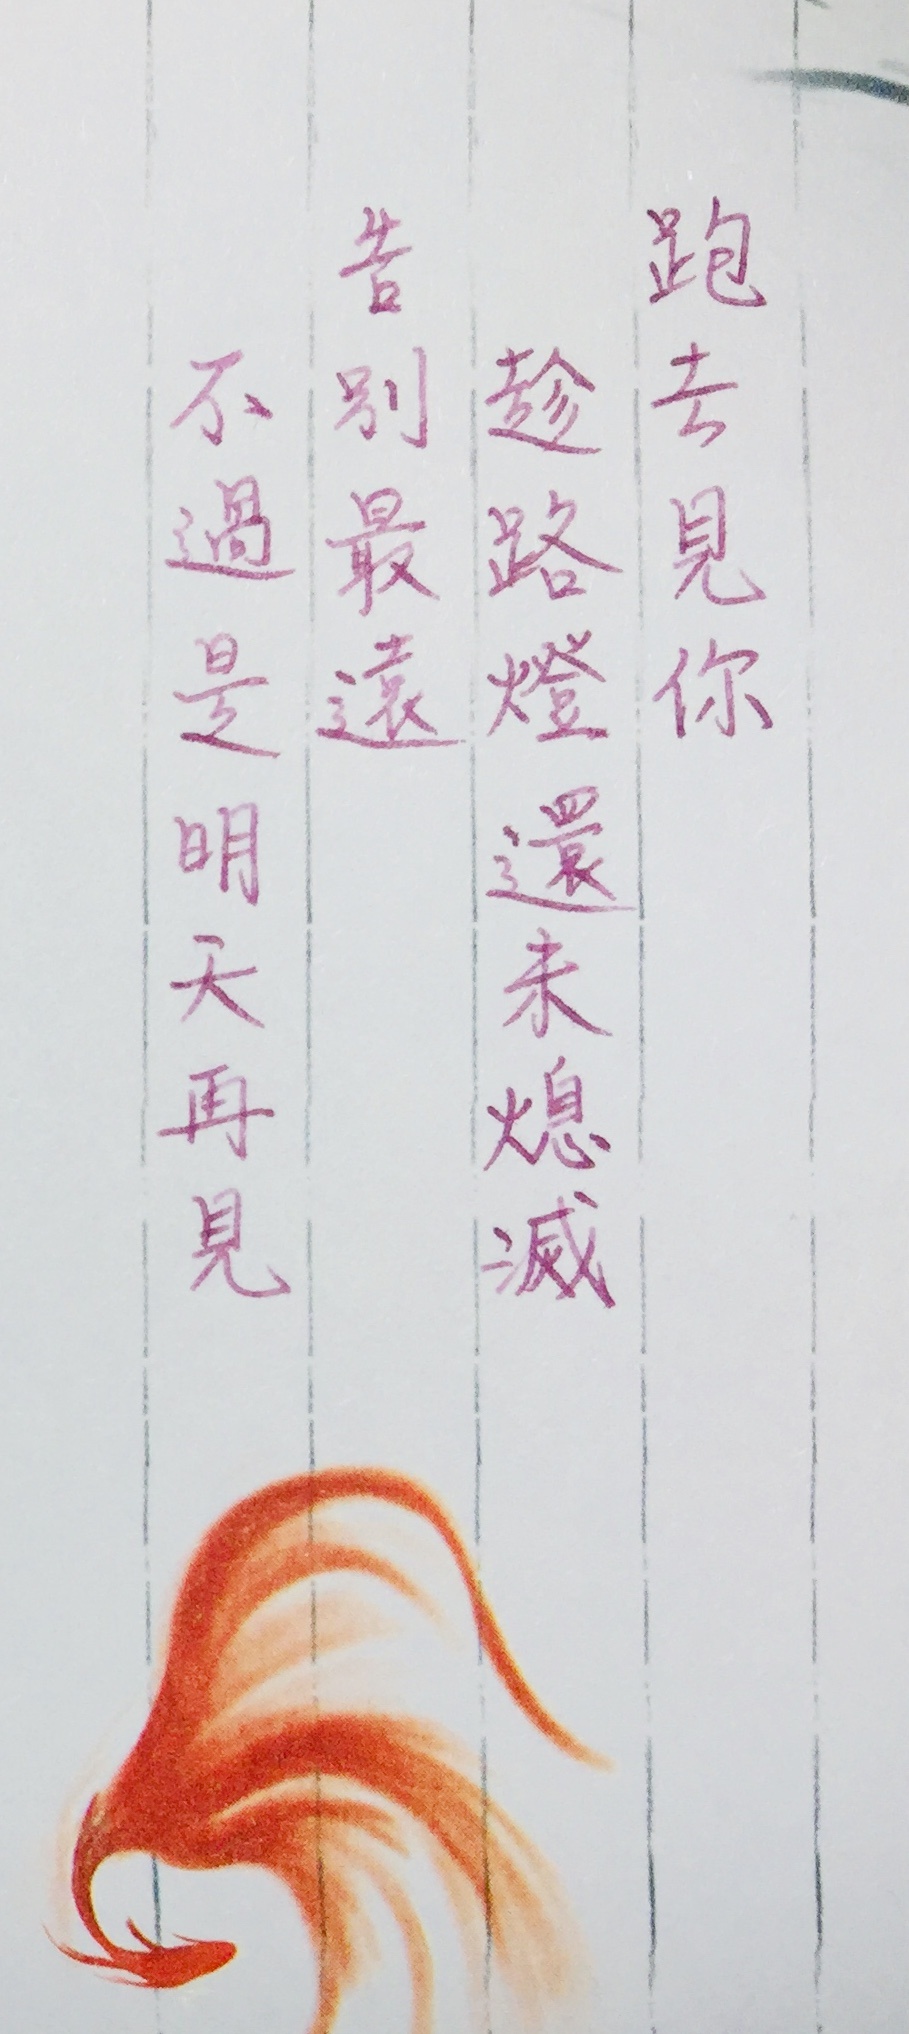 跑去見你
趁路燈還未熄滅
告別最遠
不過是明天再見